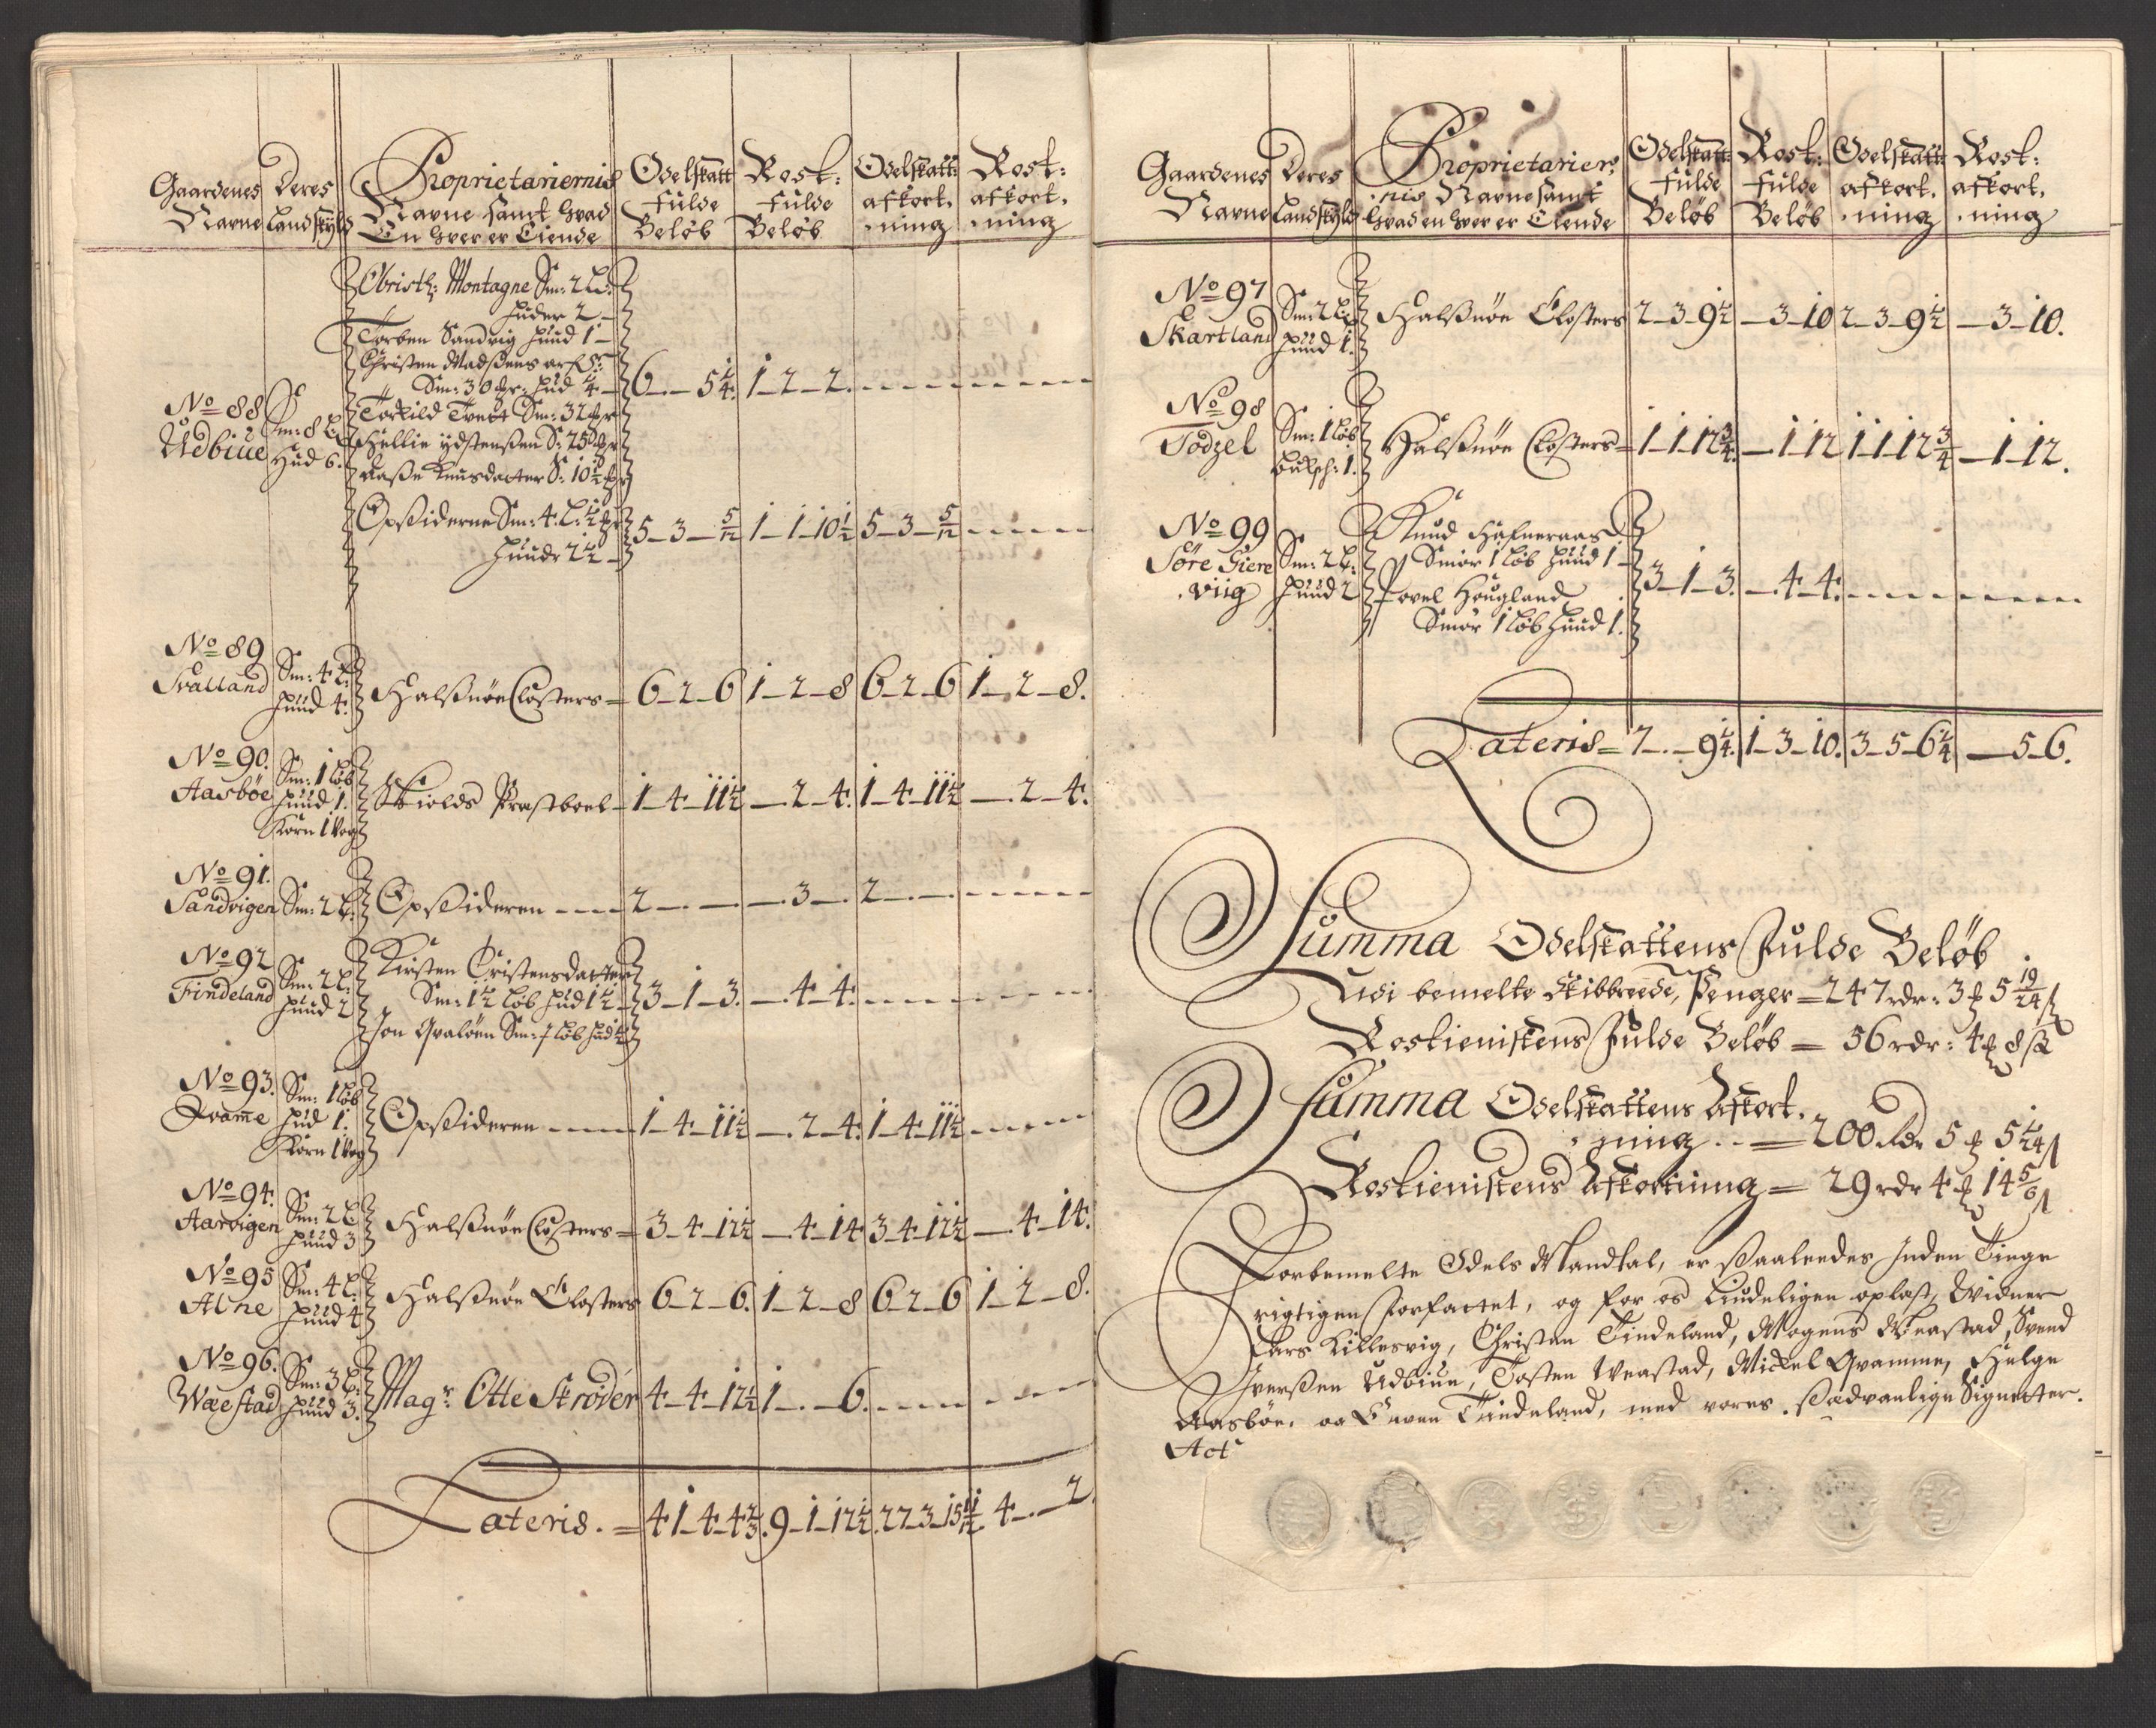 Gaardenes Navne | Deres Landskyld | Proprietariernis Navne samt hvad En hver er Eiende | Odelskatt fulde Beløb | Rost: fulde Beløb | Odelskatt: afkort.ning | Rost: afkort.ning
Obristl: Montagne Sm: 2 L:
huder 2
Torben Sandvig huud 1
Christen Madsens arf:
Sm: 30 hud 1/4
No 88 Udbiue | Sm: 8 L: Hud 6. | 6 - 5 1/4 | 1-2-2
Torkild Tvedt Sm: 32
Hellie ÿdstensen S: 25
Aasse Knudsdatter S: 10 1/2
Opsiderne Sm: 4 L: 1/2 | 5-3-5/12 | 1-1-10 1/2 | 5-3-5/12
Huude 2 1/2
No 89 Svalland | Sm: 4 L: huud 4. | Halsnøe Closters | 6-2-6 | 1-2-8 | 6-2-6 | 1-2-8.
No 90. Aasbøe | Sm: 1 Løb huud 1. Korn 1 Vog | Skiolds Præstboel | 1-4-11 1/2 | 2-4. | 1-4-11 1/2 | 2-4.
No 91. Sandvigen | Sm: 2 L: | Opsideren | 2 | 3 | 2
No 92 Findeland | Sm: 2 L: huud 2 | Kirsten Cristensdatter
Sm: 1 1/2 Løb hud 1 1/2 | 3-1-3. | 4-4.
Jon Qvaløen Sm: 1/2 Løb hud 1/2
No 93. Qvame | Sm: 1 Løb hud 1. Korn 1 Vog | Opsideren | 1-4-11 1/2 | 2-4. | 1-4-11 1/2
No 94. Aarvigen | Sm: 2 L: huud 3 | Halsnøe Closters | 3-4-12 1/2 | 4-14 | 3-4-12 1/2 | 4-14.
No 95 Alne | Sm: 4 L: huud 4 | Halsnøe Closters | 6-2-6. | 1-2-8 | 6-2-6 | 1-2-8.
No 96. Wæstad | Sm: 3 L: huud 3. | Magr: Otte Strøder | 4-4-12 1/2 | 1-6.
Lateris. = 41-4-4 2/3. | 9-1-12 1/2. | 27-3-15 11/12 | 4-2.
Gaardenes Navne | Deres Landskyld | Proprietarier.nis Navne samt hvad en hver er Eiende | Odelskatt: fulde Beløb | Rost: fulde Beløb | Odelskatt: afkort.ning | Rost: afkort.ning
No 97 Skartland | Sm: 2 L: huud 1. | Halsnøe Closters | 2-3-9 1/2 | 3-10 | 2-3-9 1/2 | 3-10.
No 98 Todzel | Sm: 1 Løb 1. | Halsnøe Closters | 1-1-12 3/4. | 1-12 | 1-1-12 3/4 | 1-12.
No 99 Søre Giere.viig | Sm: 2 L: huud 2 | Knud Hafneraas
Smør 1 Løb huud 1 | 3-1-3. | 4-4.
Povel Hougland
Smør 1 Løb huud 1.
Lateris = 7-9 1/4. | 1-3-10. | 3-5-6 1/4 | 5-6.
Summa Odelskattens Fulde Beløb
Udi bemelte Skibbreede, Penger = 247 rdr: 3 5 19/24
Rostienistens Fulde Beløb = 56 rdr: 4 8
Summa Odelskattens Afkort.
ning = 200 Rdr 5 5 1/24
Rostienistens Afkortning = 29 rdr 4 14 5/6
Forbemelte Odels Mandtal, er saaleedes Inden Tinge
rigtigen forfattet, og for os tiudeligen oplæst, Widner
Lars Killesvig, Christen Findeland, Mogens Weastad, Svend
Iversen Udbiue, Tosten Weastad, Mickel Qvamme, Helge
Aasbøe, og Findeland, med vores sædvanlige Signetter.
Act